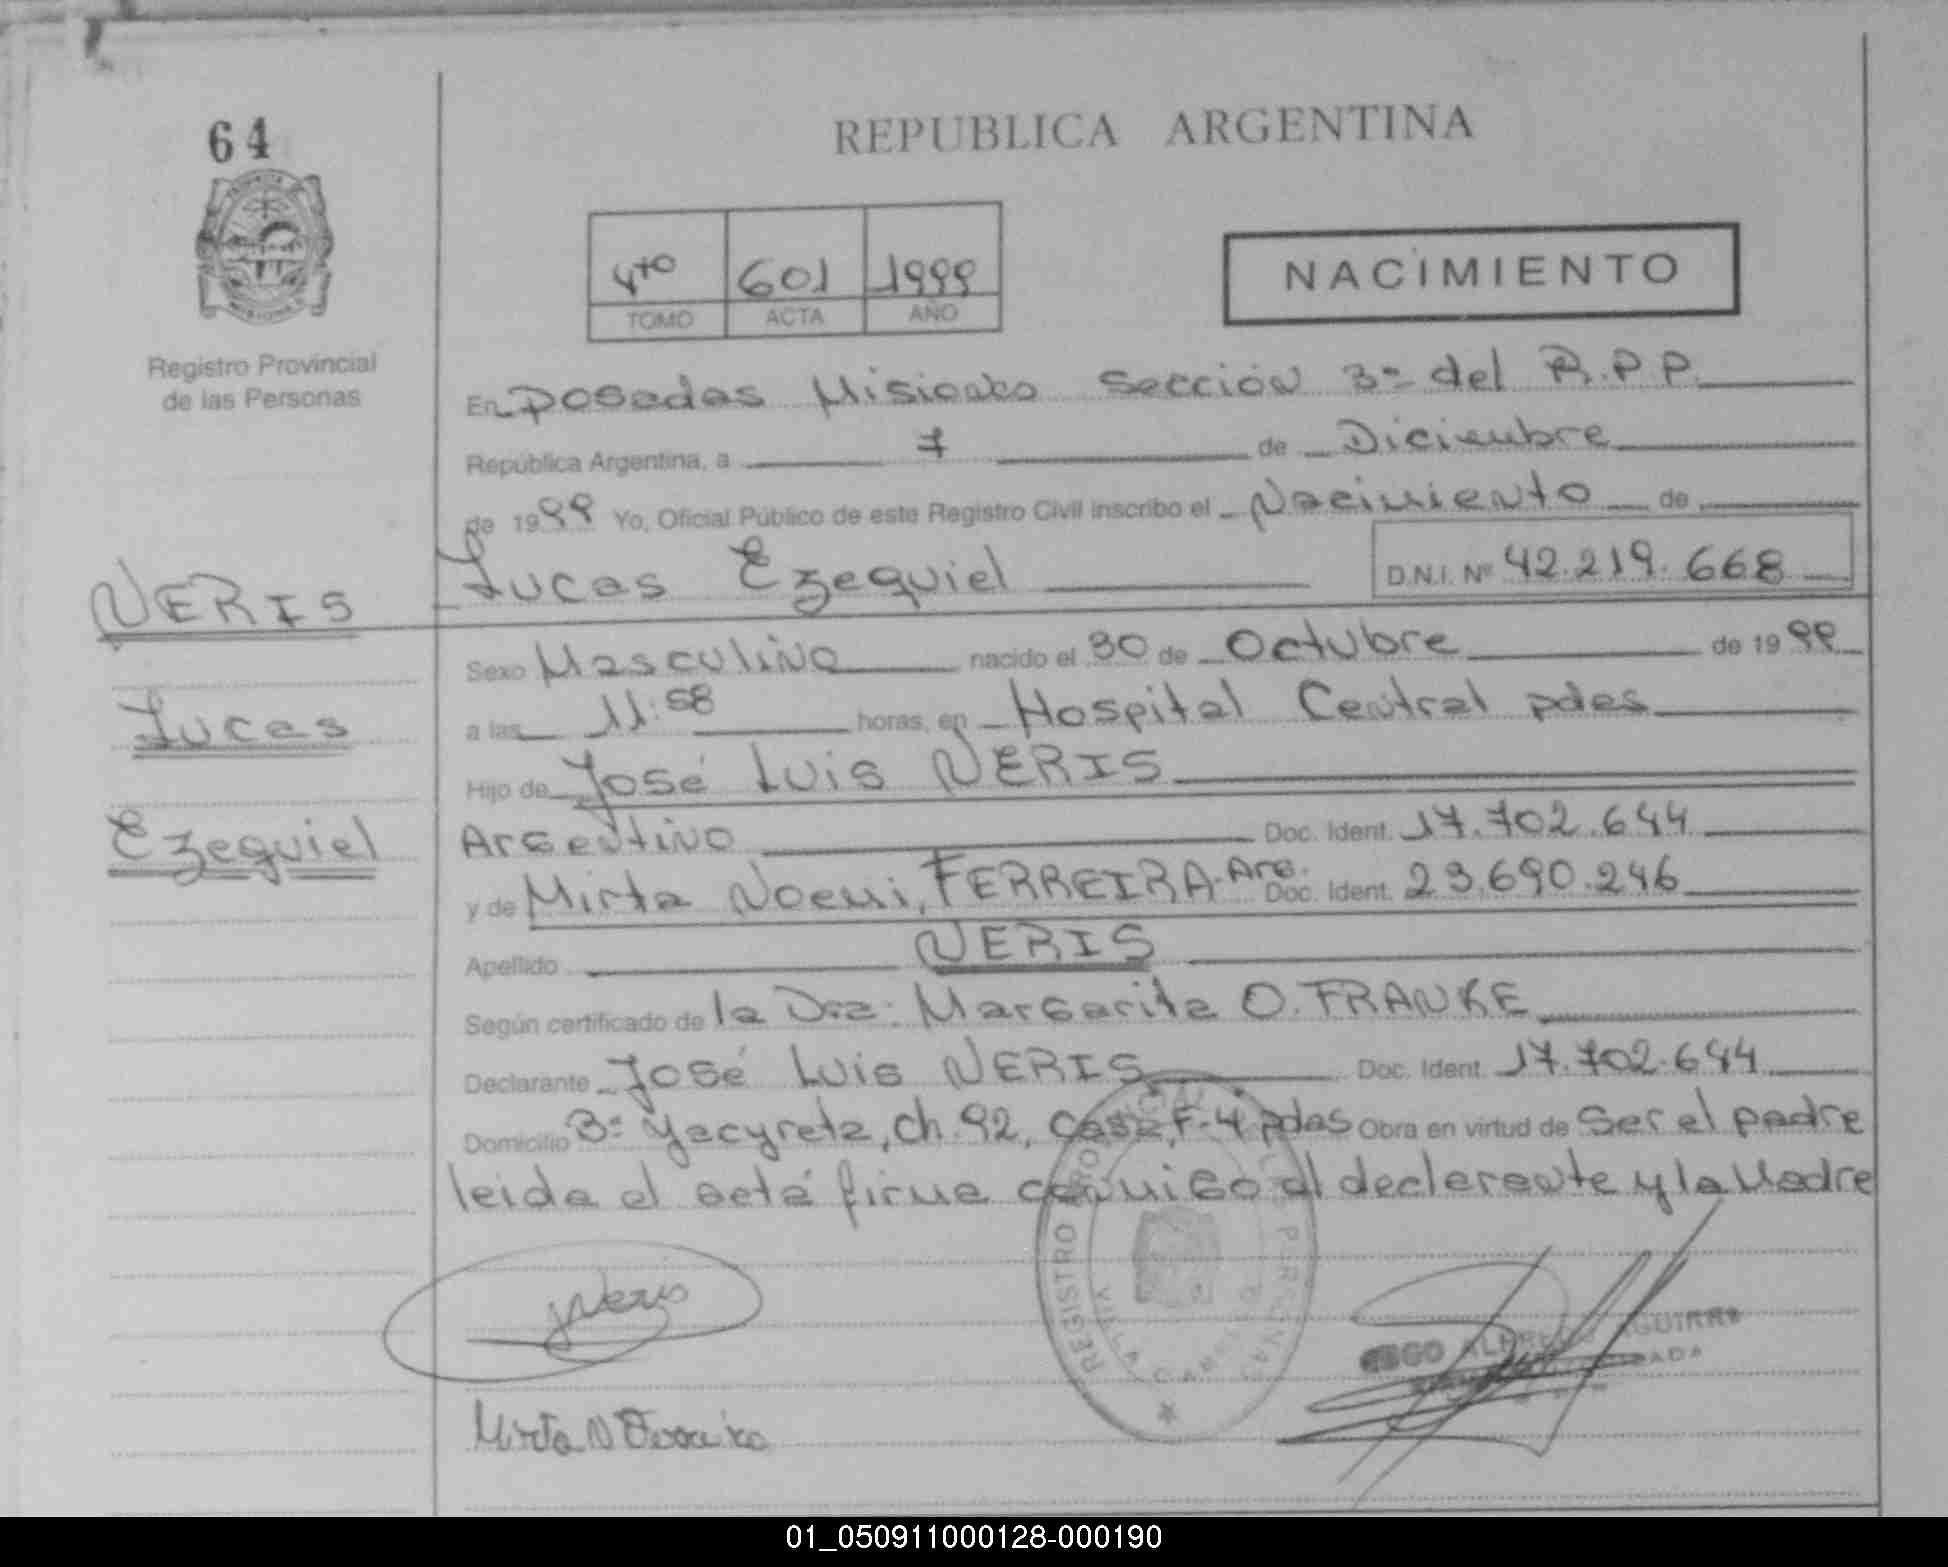 64
REPUBLICA ARGENTINA
4to 601 1999
TOMO ACTA AÑO
NACIMIENTO
Registro Provincial
de las Personas
En Posadas Misiones Sección 3ª del R.P.P.
República Argentina, a 7 de Diciembre
de 1999 Yo, Oficial Público de este Registro Civil inscribo el Nacimiento de
Lucas Ezequiel D.N.I. Nº 42.219.668
NERIS
Lucas
Ezequiel
Sexo Masculino nacido el 30 de Octubre de 1999
a las 11:58 horas, en Hospital Central pdas
Hijo de José Luis NERIS
Argentino Doc. Ident. 17.702.644
y de Mirta Noemi, FERREIRA. Arg. Doc. Ident. 23.690.246
Apellido NERIS
Según certificado de la Dra: Margarita O. FRANKE
Declarante José Luis NERIS Doc. Ident. 17.702.644
Domicilio Bº Yacyreta, ch. 92, casa, F-4 pdas Obra en virtud de ser el padre
leida el acta firma conmigo el declarante y la Madre
REGISTRO PROVINCIAL DE LAS PERSONAS
VILLA CABELLO
JNeris
ALFREDO AGUIRRE
Mirta N Ferreira
01_050911000128-000190